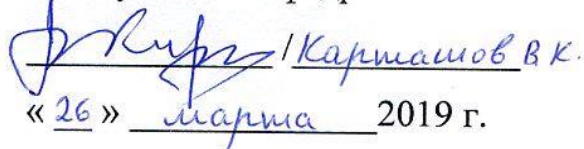 /Карташов В К.
« 26 » марта 2019 г.